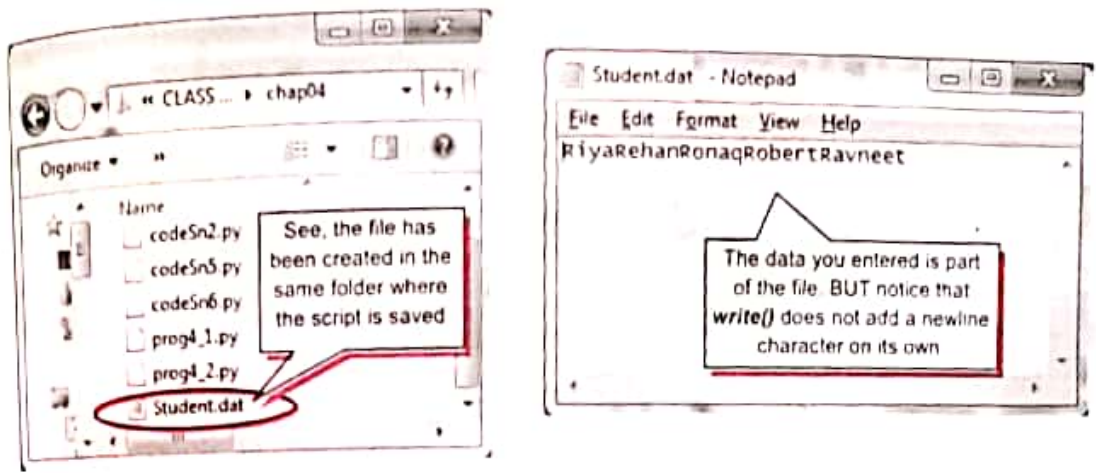 « CLASS ... ▸ chap04
Organize ▾ »
Name
codeSn2.py
codeSn5.py
codeSn6.py
prog4_1.py
prog4_2.py
Student.dat
See, the file has
been created in the
same folder where
the script is saved
Student.dat - Notepad
File Edit Format View Help
RiyaRehanRonaqRobertRavneet
The data you entered is part
of the file. BUT notice that
write() does not add a newline
character on its own